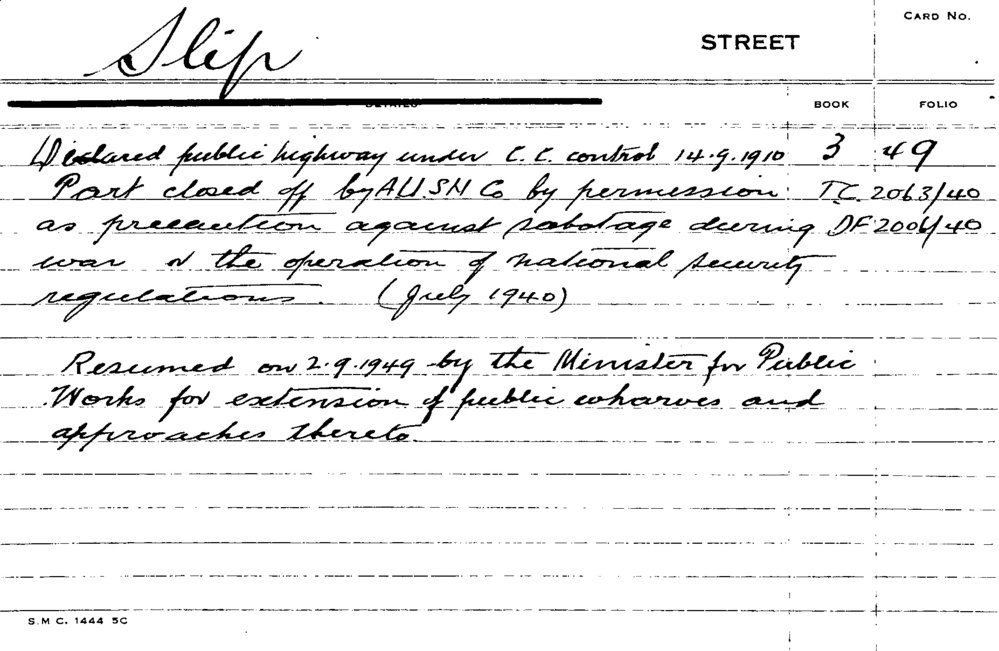 CARD NO.
Slip STREET
DETAILS BOOK FOLIO
Declared public highway under C.C. control 14.9.1910 3 49
Part closed off by A.U.S.N Co by permission T.C. 2063/40
as precaution against sabotage during DF 2006/40
war & the operation of national security
regulations. (July 1940)
Resumed on 2.9.1949 by the Minister for Public
Works for extension of public wharves and
approaches thereto
S.M.C. 1444 5C